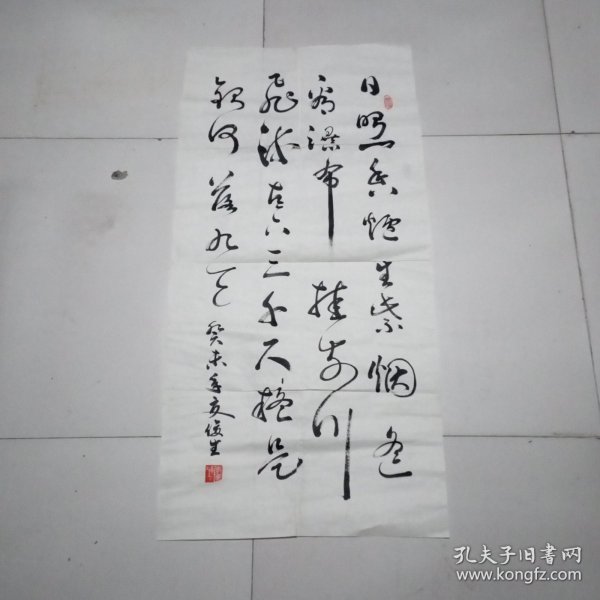 日照香爐生紫烟遥
看瀑布挂前川
飛流直下三千尺疑是
銀河落九天
癸未年夏俊生
孔夫子旧書网
www.kongfz.com